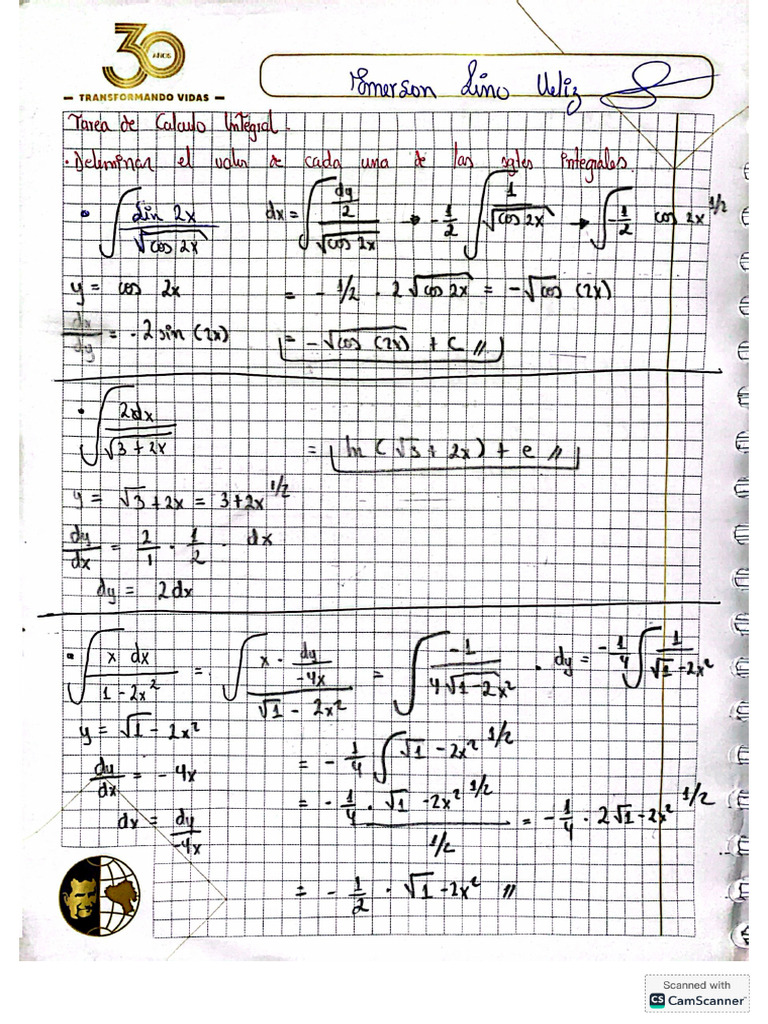 30
AÑOS
TRANSFORMANDO VIDAS
Emerson Lino Veliz
Tarea de Calculo Integral.
• Determinar el valor de cada una de las sgtes integrales.
• ∫ sin 2x / √cos 2x   dx = ∫ (dy/2) / √cos 2x → -1/2 ∫ 1/√cos 2x → ∫ -1/2 cos 2x^1/2
y = cos 2x   = - 1/2 · 2√cos 2x = -√cos (2x)
dx/dy = -2 sin (2x)   = -√cos (2x) + C //
• ∫ 2dx / √3+2x   = ln (√3 + 2x) + e //
y = √3+2x = 3+2x^1/2
dy/dx = 2/1 · 1/2 · dx
dy = 2dx
• ∫ x dx / 1-2x² = ∫ x · (dy/-4x) / √1 - 2x² = ∫ -1 / 4√1-2x² · dy = -1/4 ∫ 1 / √1-2x²
y = √1 - 2x²   = - 1/4 ∫ √1 - 2x² ^1/2
dy/dx = - 4x   = - 1/4 · √1 - 2x² ^1/2 / 1/2 = - 1/4 · 2√1-2x² ^1/2
dx = dy/-4x
= - 1/2 · √1 - 2x² //
Scanned with
CS CamScanner